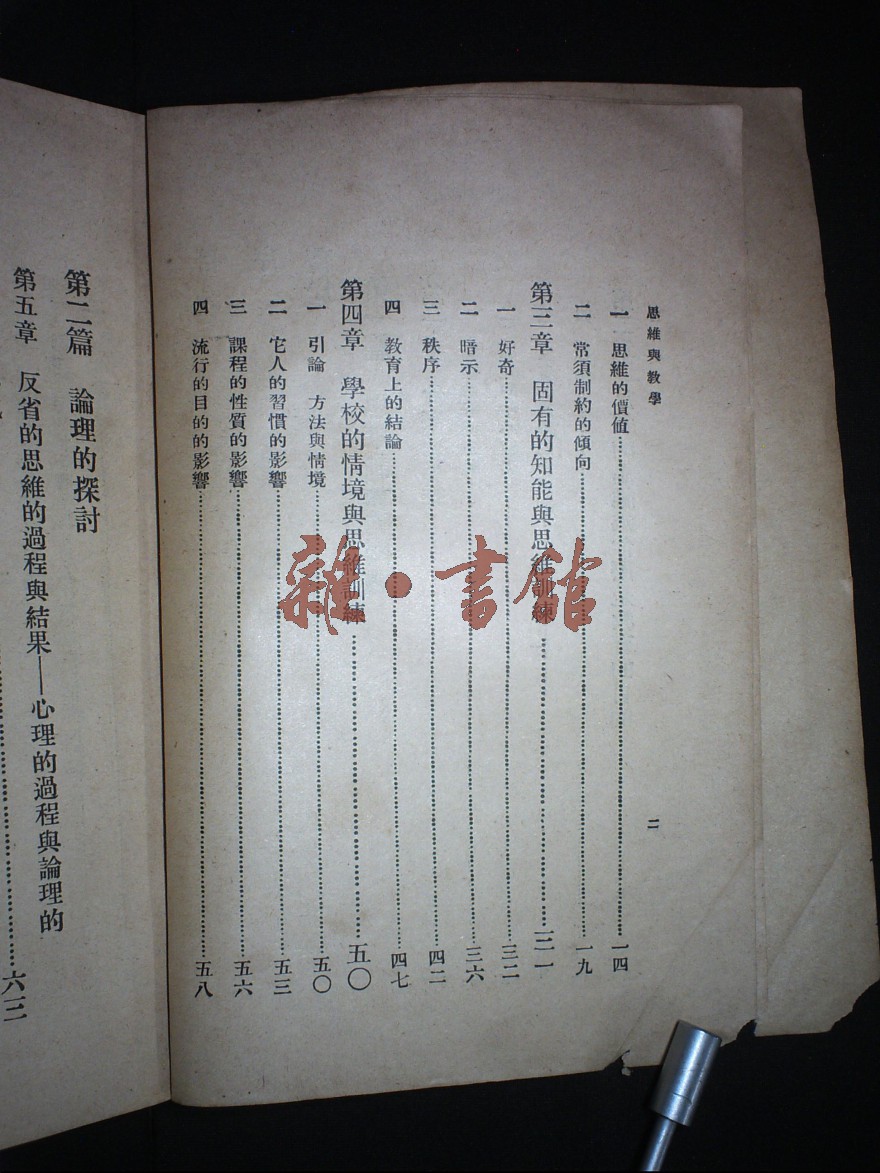 思維與教學
二
一 思維的價值……一四
二 常須制約的傾向……一九
第三章 固有的知能與思維訓練……三一
一 好奇……三二
二 暗示……三六
三 秩序……四二
四 教育上的結論……四七
第四章 學校的情境與思維訓練……五〇
一 引論 方法與情境……五〇
二 它人的習慣的影響……五三
三 課程的性質的影響……五六
四 流行的目的的影響……五八
第二篇 論理的探討
第五章 反省的思維的過程與結果——心理的過程與論理的
……六三
雜·書館